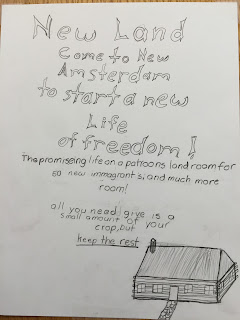 New Land
Come to New
Amsterdam
to start a new
Life
of freedom!
The promising life on a patroons land room for
50 new immagrants, and much more
room!
all you need give is a
small amount of your
crop, but
keep the rest